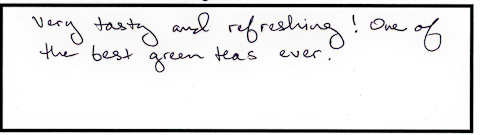 Very tasty and refreshing! One of
the best green teas ever.